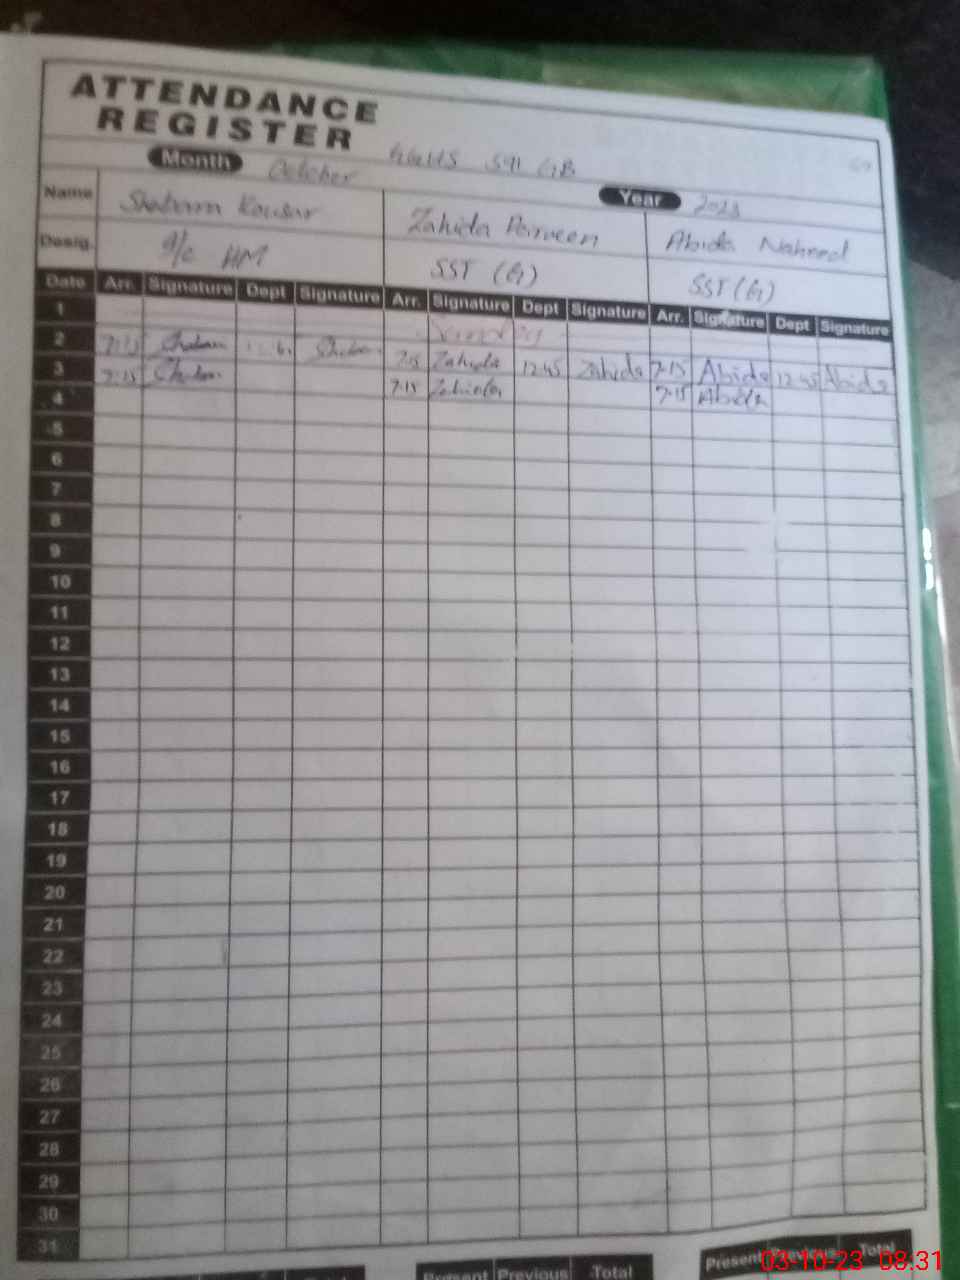 ATTENDANCE
REGISTER
Month October GGHS 591 GB
Year 2023
Name Shabam Kousar Zahida Perveen Abida Naheed
Desig. I/c HM SST (G) SST (G)
Date Arr. Signature Dept Signature Arr. Signature Dept Signature Arr. Signature Dept Signature
1 Sunday
2 7:15 Shabam Shabam 7:15 Zahida 12:45 Zahida 7:15 Abida 12:45 Abida
3 7:15 Shabam 7:15 Zahida 7:15 Abida
4
5
6
7
8
9
10
11
12
13
14
15
16
17
18
19
20
21
22
23
24
25
26
27
28
29
30
31
Present Previous Total Present Previous Total
03-10-23 08:31